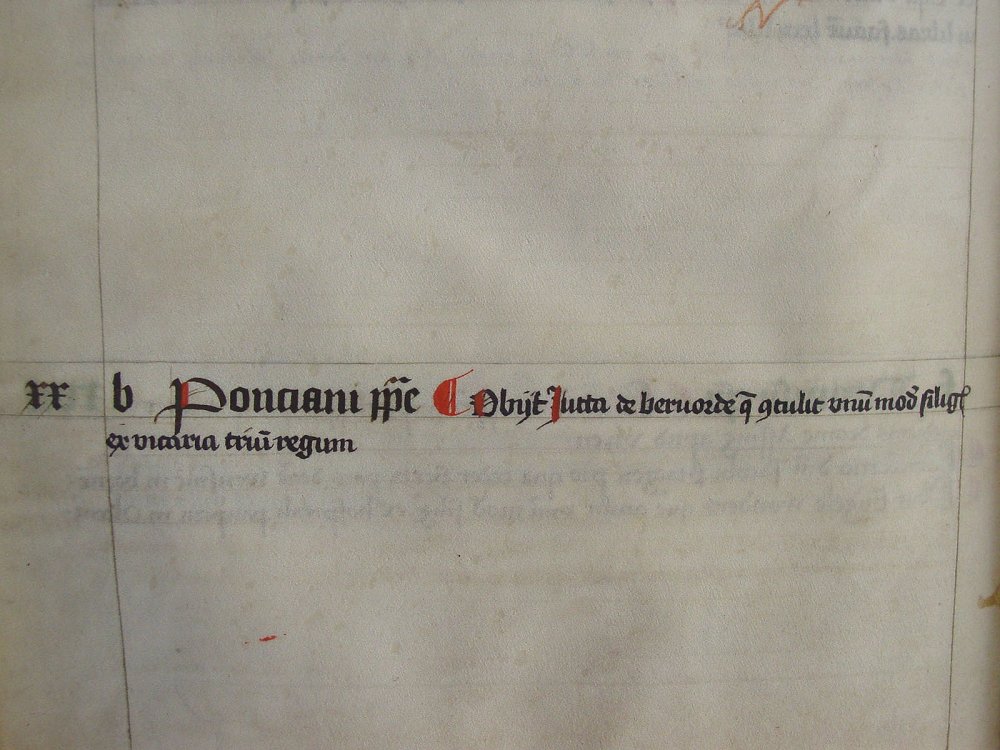 xx b Ponciani pp̄e Obijt Jutta de beruorde q̄ ɔtulit vnū mod̄ siliḡ
ex vicaria triū regum